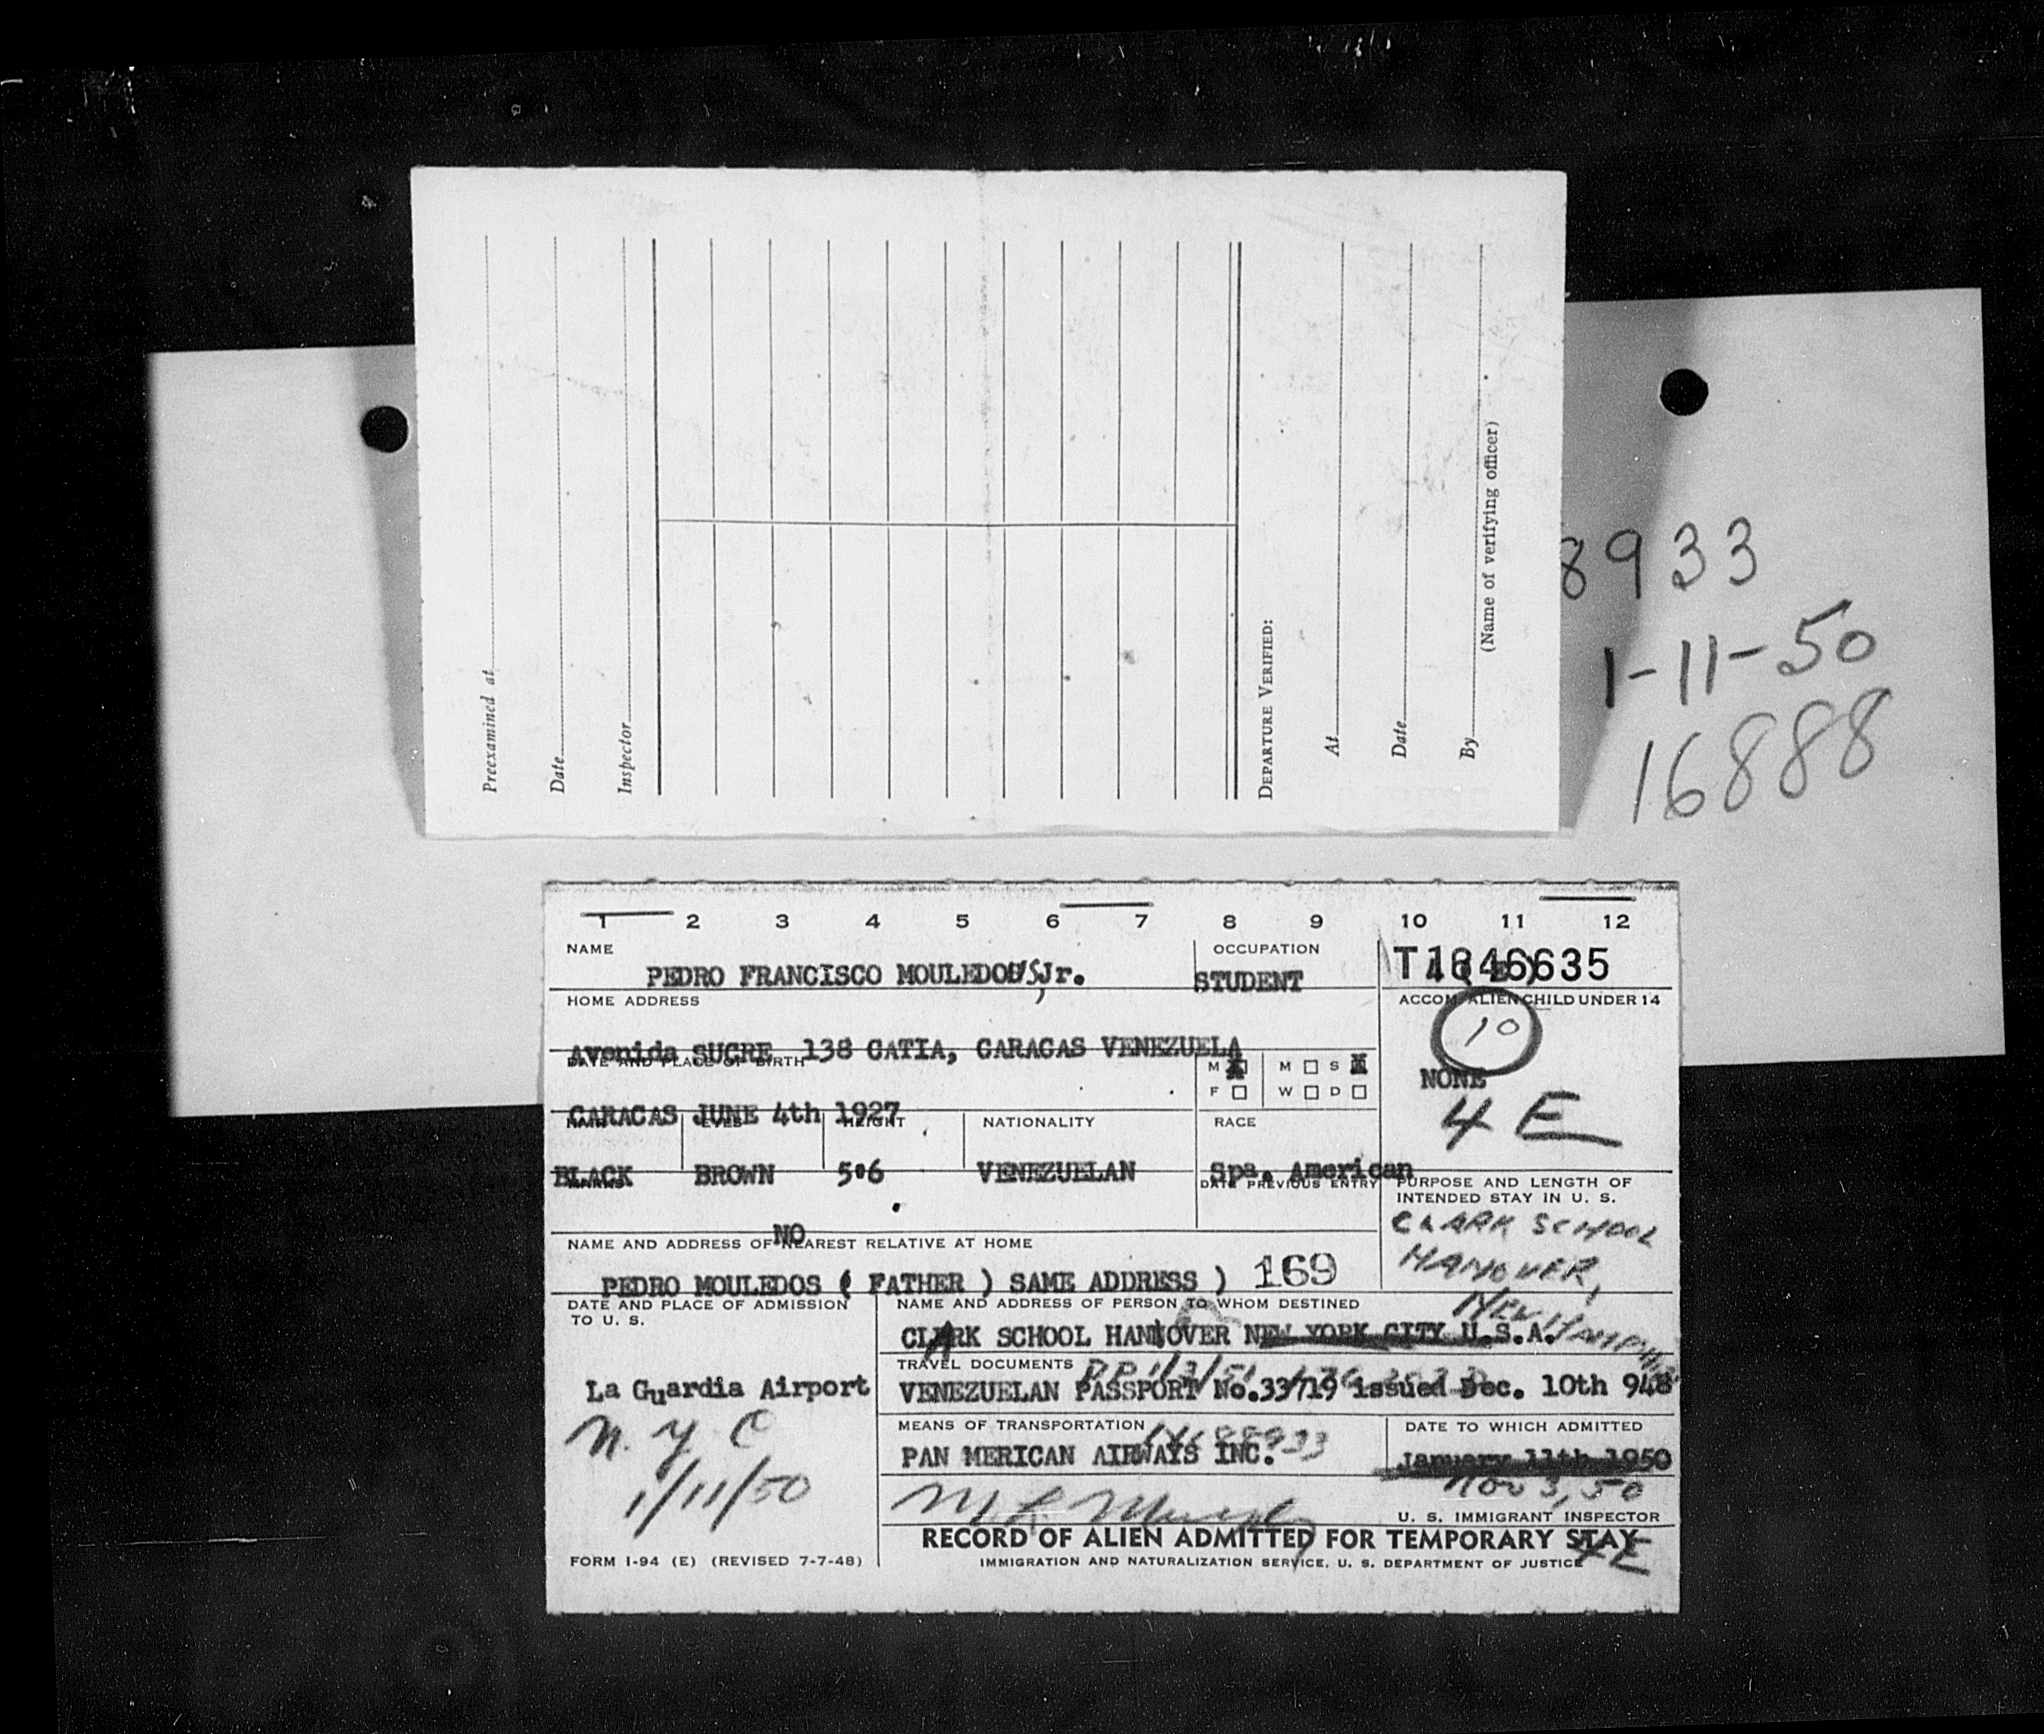 Preexamined at
Date
Inspector
DEPARTURE VERIFIED:
At
Date
By
(Name of verifying officer)
8933
1-11-50
16888
1 2 3 4 5 6 7 8 9 10 11 12
NAME
OCCUPATION
PEDRO FRANCISCO MOULEDOUS, Jr.
STUDENT
T1846635
HOME ADDRESS
ACCOM. ALIEN CHILD UNDER 14
10
Avenida SUCRE 138 CATIA, CARACAS VENEZUELA
DATE AND PLACE OF BIRTH
M X M S X
F W D
NONE
4 E
CARACAS JUNE 4th 1927
HAIR EYES HEIGHT NATIONALITY RACE
BLACK BROWN 5'6 VENEZUELAN Spa. American
MARKS
DATE PREVIOUS ENTRY
PURPOSE AND LENGTH OF
INTENDED STAY IN U. S.
NO
CLARK SCHOOL
HANOVER,
NEW HAMPSHIRE
NAME AND ADDRESS OF NEAREST RELATIVE AT HOME
PEDRO MOULEDOS ( FATHER ) SAME ADDRESS ) 169
DATE AND PLACE OF ADMISSION
TO U. S.
NAME AND ADDRESS OF PERSON TO WHOM DESTINED
CLARK SCHOOL HANOVER NEW YORK CITY U.S.A.
TRAVEL DOCUMENTS
La Guardia Airport
VENEZUELAN PASSPORT No.33719 issued Dec. 10th 948
N. Y. C
1/11/50
MEANS OF TRANSPORTATION
DATE TO WHICH ADMITTED
PAN MERICAN AIRWAYS INC.
January 11th 1950
Nov 3, 50
U. S. IMMIGRANT INSPECTOR
RECORD OF ALIEN ADMITTED FOR TEMPORARY STAY
4E
FORM I-94 (E) (REVISED 7-7-48)
IMMIGRATION AND NATURALIZATION SERVICE, U. S. DEPARTMENT OF JUSTICE